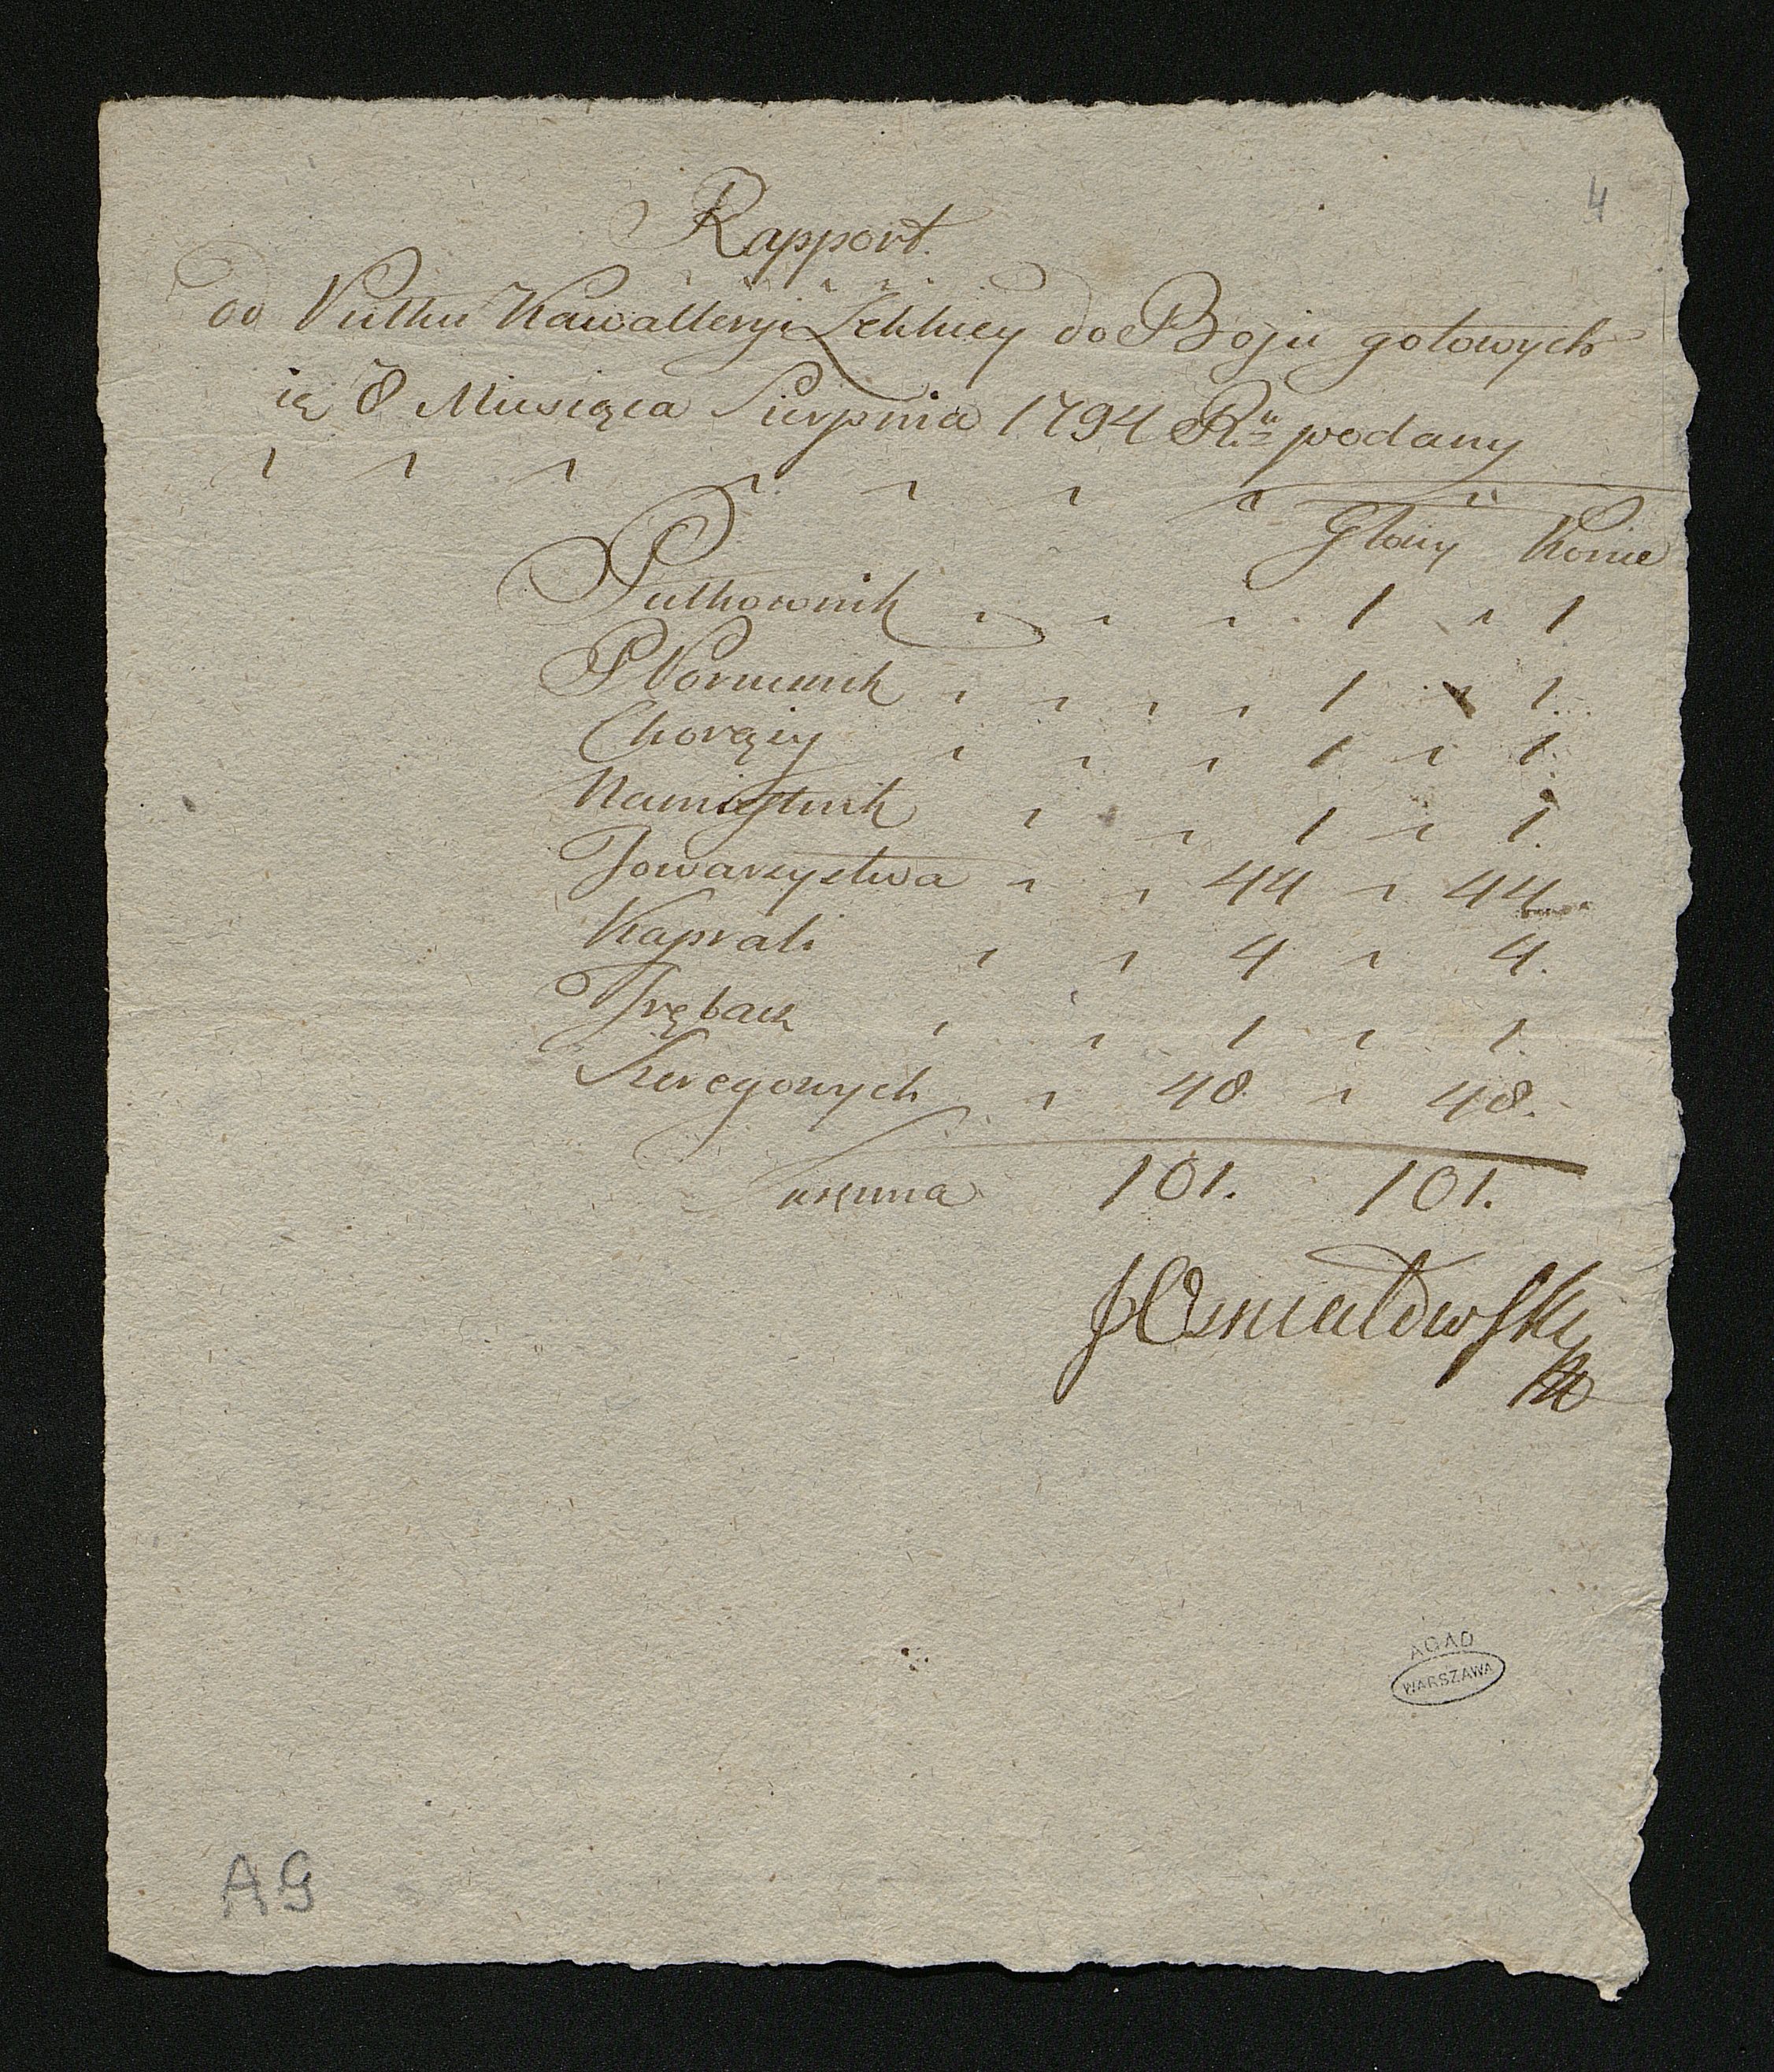 4
Rapport.
od Pułku Kawalleryi Lekkiey do Boju gotowych
ią 8 Miesiąca Sierpnia 1794 Ru podany
Głowy Konie
Pułkownik 1 1
P Porucznik 1 1.
Chorąży 1 1.
Namiestnik 1 1.
Towarzystwa 44 44
Kaprali 4 4.
Trębacz 1 1.
Szeregowych 48 48.
Summa 101. 101.
AGAD
WARSZAWA
AG